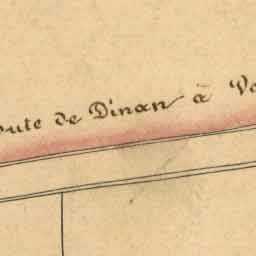 oute de Dinan à Ve